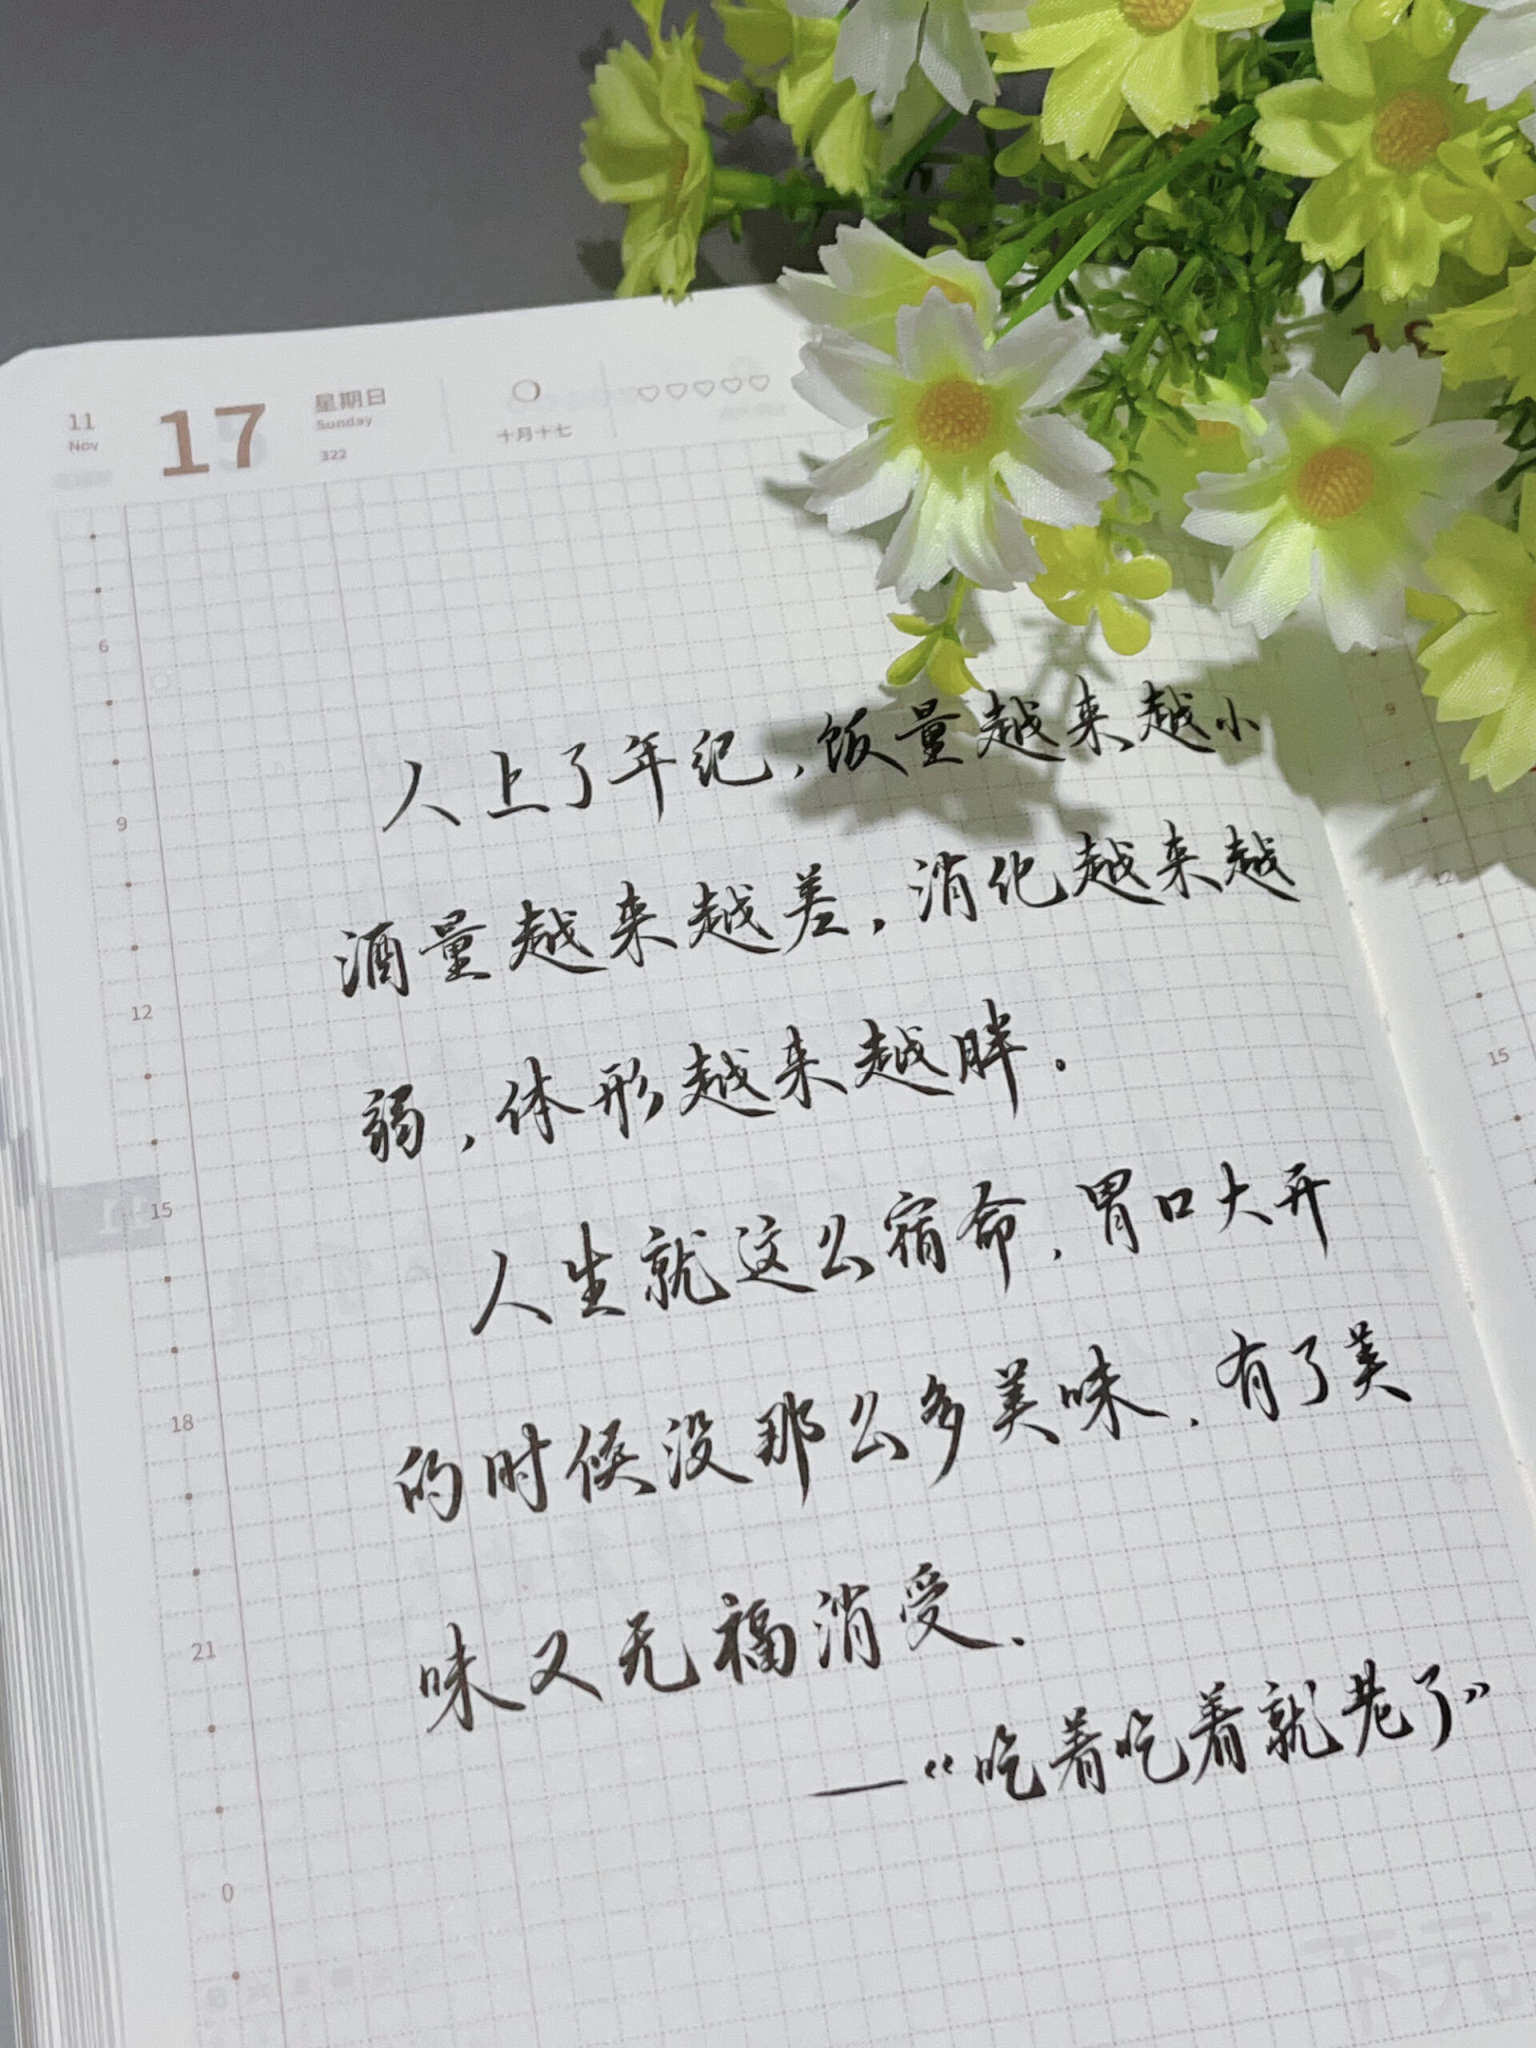 11
Nov
17
星期日
Sunday
322
十月十七
6
9
12
15
18
21
0
人上了年纪，饭量越来越小
酒量越来越差，消化越来越
弱，体形越来越胖。
人生就这么宿命，胃口大开
的时候没那么多美味，有了美
味又无福消受.
—“吃着吃着就老了”
9
12
15